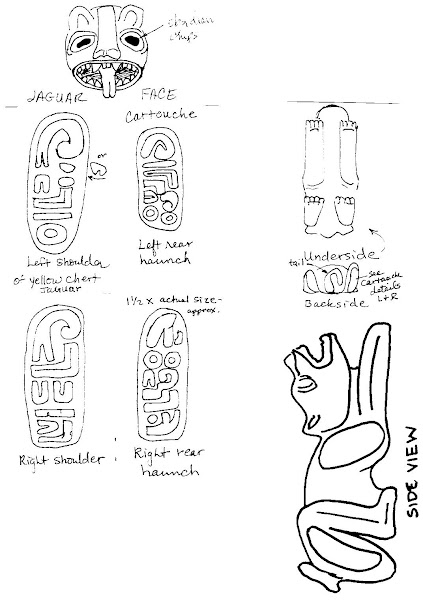 obsidian
chips
JAGUAR FACE
Cartouche
Left shoulder
of yellow chert
Jaguar
Left rear
haunch
Underside
tail
see
cartouche
details
L+R
Backside
1½ x actual size-
approx.
Right shoulder
Right rear
haunch
SIDE VIEW